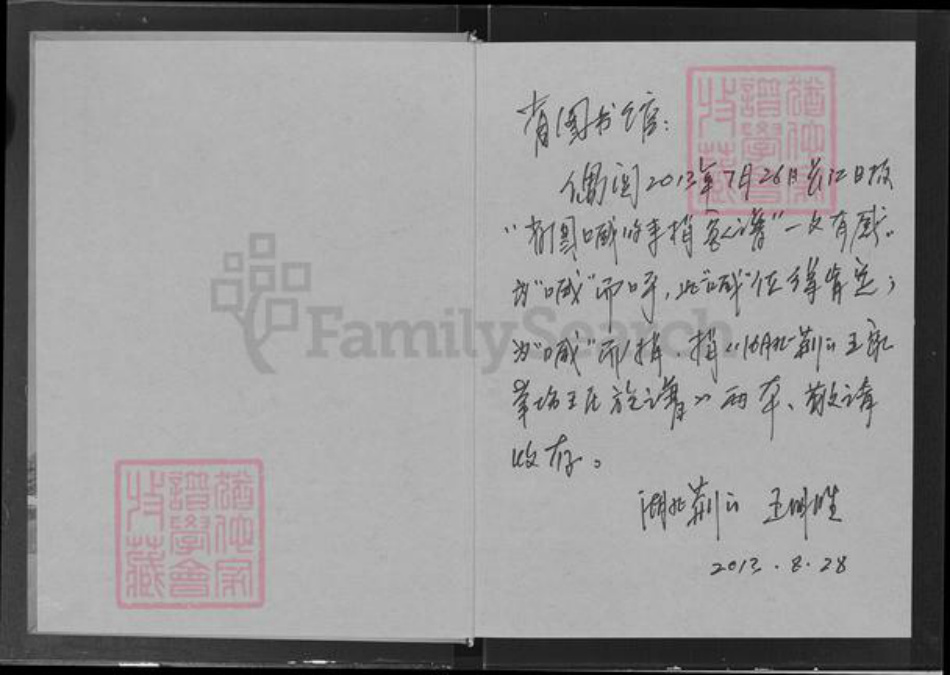 省图书馆：
偶阅2013年7月26日长江日报
“省图喊你来捐家谱”一文有感。
为“喊”而呼，此“喊”值得肯定；
为“喊”而捐，捐《湖北荆门王家
王氏族谱》两本、敬请
收存。
湖北荆门 王明胜
2013.8.28
FamilySearch
譜學會
收藏
譜學會
收藏